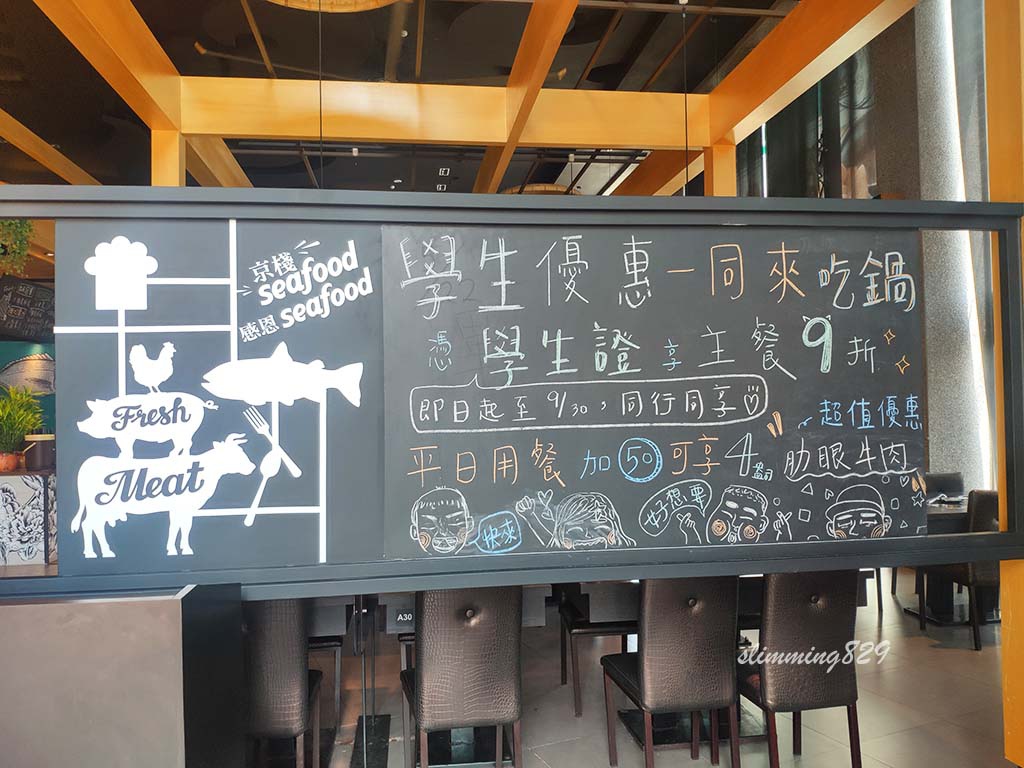 京棧
seafood
感恩 seafood
Fresh
Meat
學生優惠一同來吃鍋
憑學生證享主餐9折
即日起至9/30，同行同享♡
超值優惠
平日用餐 加50可享4盎司 肋眼牛肉
快來
好想要
A30
slimming829